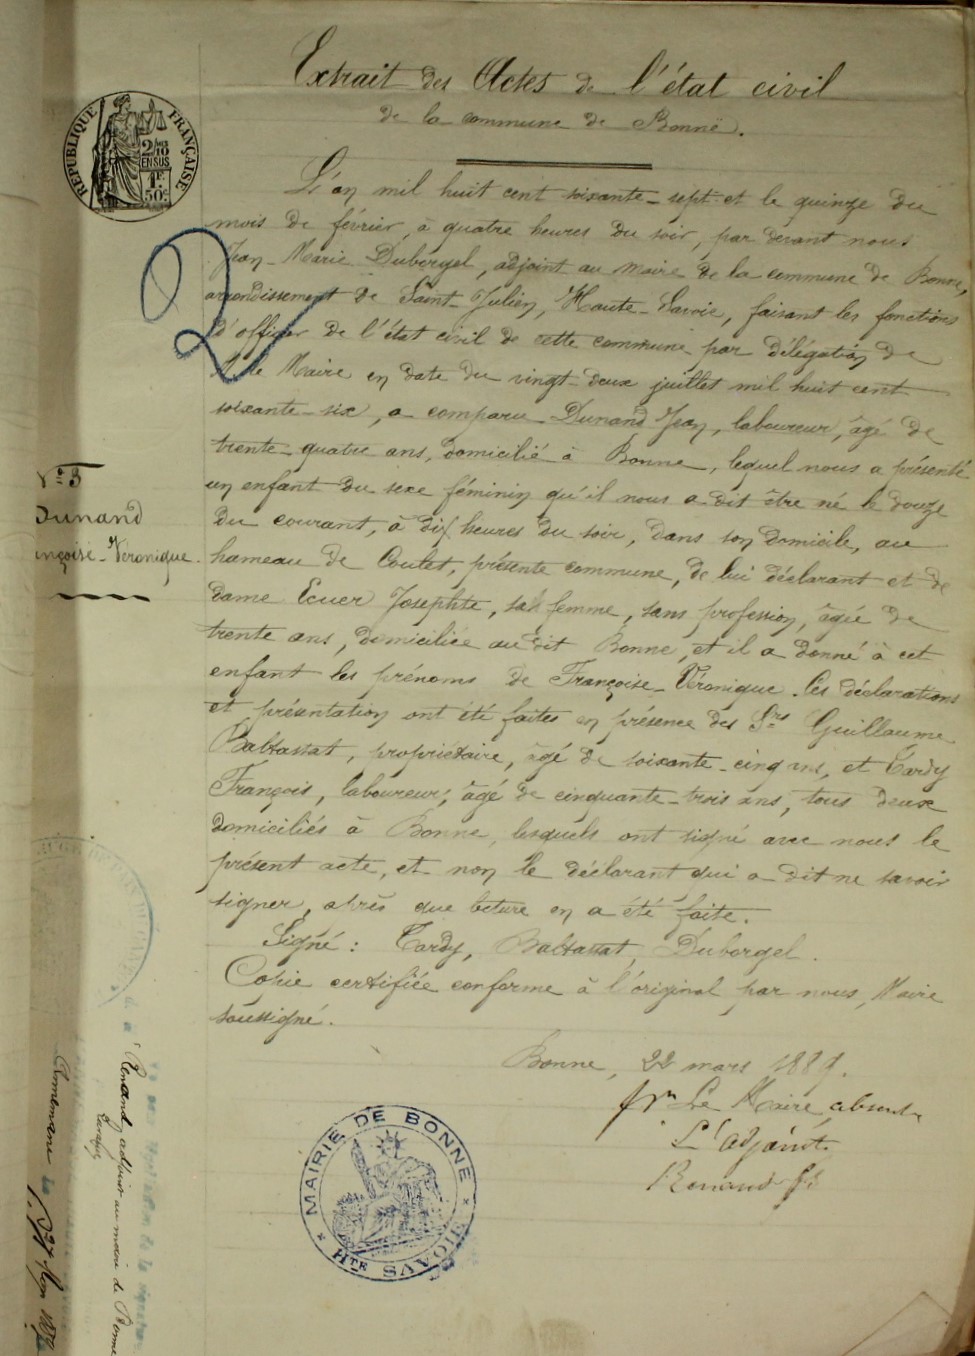 Extrait des Actes de l'état civil
de la commune de Bonne.
RÉPUBLIQUE FRANÇAISE
2/10
EN SUS
1F
50c
L'an mil huit cent soixante-sept et le quinze du
mois de février, à quatre heures du soir, par devant nous
Jean-Marie Duborgel, adjoint au Maire de la commune de Bonne,
arrondissement de Saint-Julien, Haute-Savoie, faisant les fonctions
d'officier de l'état civil de cette commune par délégation de
M. le Maire en date du vingt-deux juillet mil huit cent
soixante-six, a comparu Dunand Jean, laboureur, âgé de
trente-quatre ans, domicilié à Bonne, lequel nous a présenté
un enfant du sexe féminin qu'il nous a dit être né le douze
du courant, à dix heures du soir, dans son domicile, au
hameau de Coulet, présente commune, de lui déclarant et de
dame Ecuer Josephte, sa femme, sans profession, âgée de
trente ans, domiciliée au dit Bonne, et il a donné à cet
enfant les prénoms de Françoise-Véronique. Ces déclarations
et présentation ont été faites en présence des Srs Guillaume
Baltassat, propriétaire, âgé de soixante-cinq ans, et Tardy
François, laboureur, âgé de cinquante-trois ans, tous deux
domiciliés à Bonne, lesquels ont signé avec nous le
présent acte, et non le déclarant qui a dit ne savoir
signer, après que lecture en a été faite.
Signé : Tardy, Baltassat, Duborgel.
Copie certifiée conforme à l'original par nous, Maire
soussigné.
Bonne, 22 mars 1889.
pr Le Maire absent
L'adjoint
Renand
N° 3
Dunand
nçoise-Véronique.
2
MAIRIE DE BONNE
HTE SAVOIE
Renand adjoint au maire de Bonne